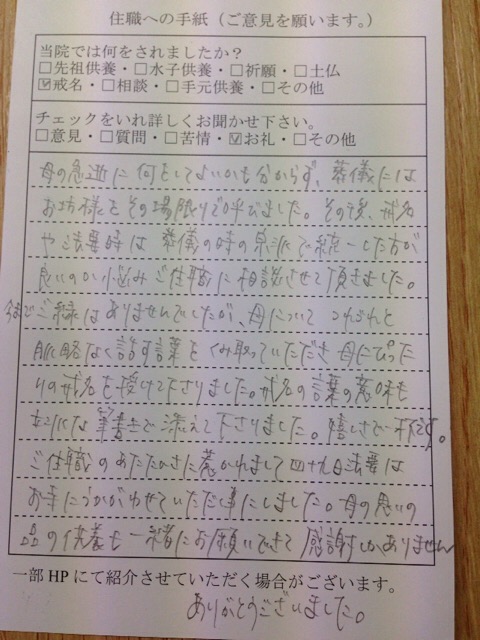 住職への手紙（ご意見を願います。）
当院では何をされましたか？
□先祖供養・□水子供養・□祈願・□土仏
☑戒名・□相談・□手元供養・□その他
チェックをいれ詳しくお聞かせ下さい。
□意見・□質問・□苦情・☑お礼・□その他
母の急逝に何をしてよいかも分からず、葬儀には
お坊様をその場限りで呼びました。その後、戒名
や法要時は葬儀の時の宗派で統一した方が
良いのか悩みご住職に相談させて頂きました。
今までご縁はありませんでしたが、母について つれづれと
脈略なく話す言葉をくみ取っていただき 母にぴった
りの戒名を授けて下さりました。戒名の言葉の意味も
立派な筆書きで添えて下さりました。嬉しさで
ご住職のあたたかさに惹かれまして四十九日法要は
お寺にうかがわせていただく事にしました。母の思いの
品の供養も一緒にお願いできて感謝しかありません
ありがとうございました。
一部HPにて紹介させていただく場合がございます。